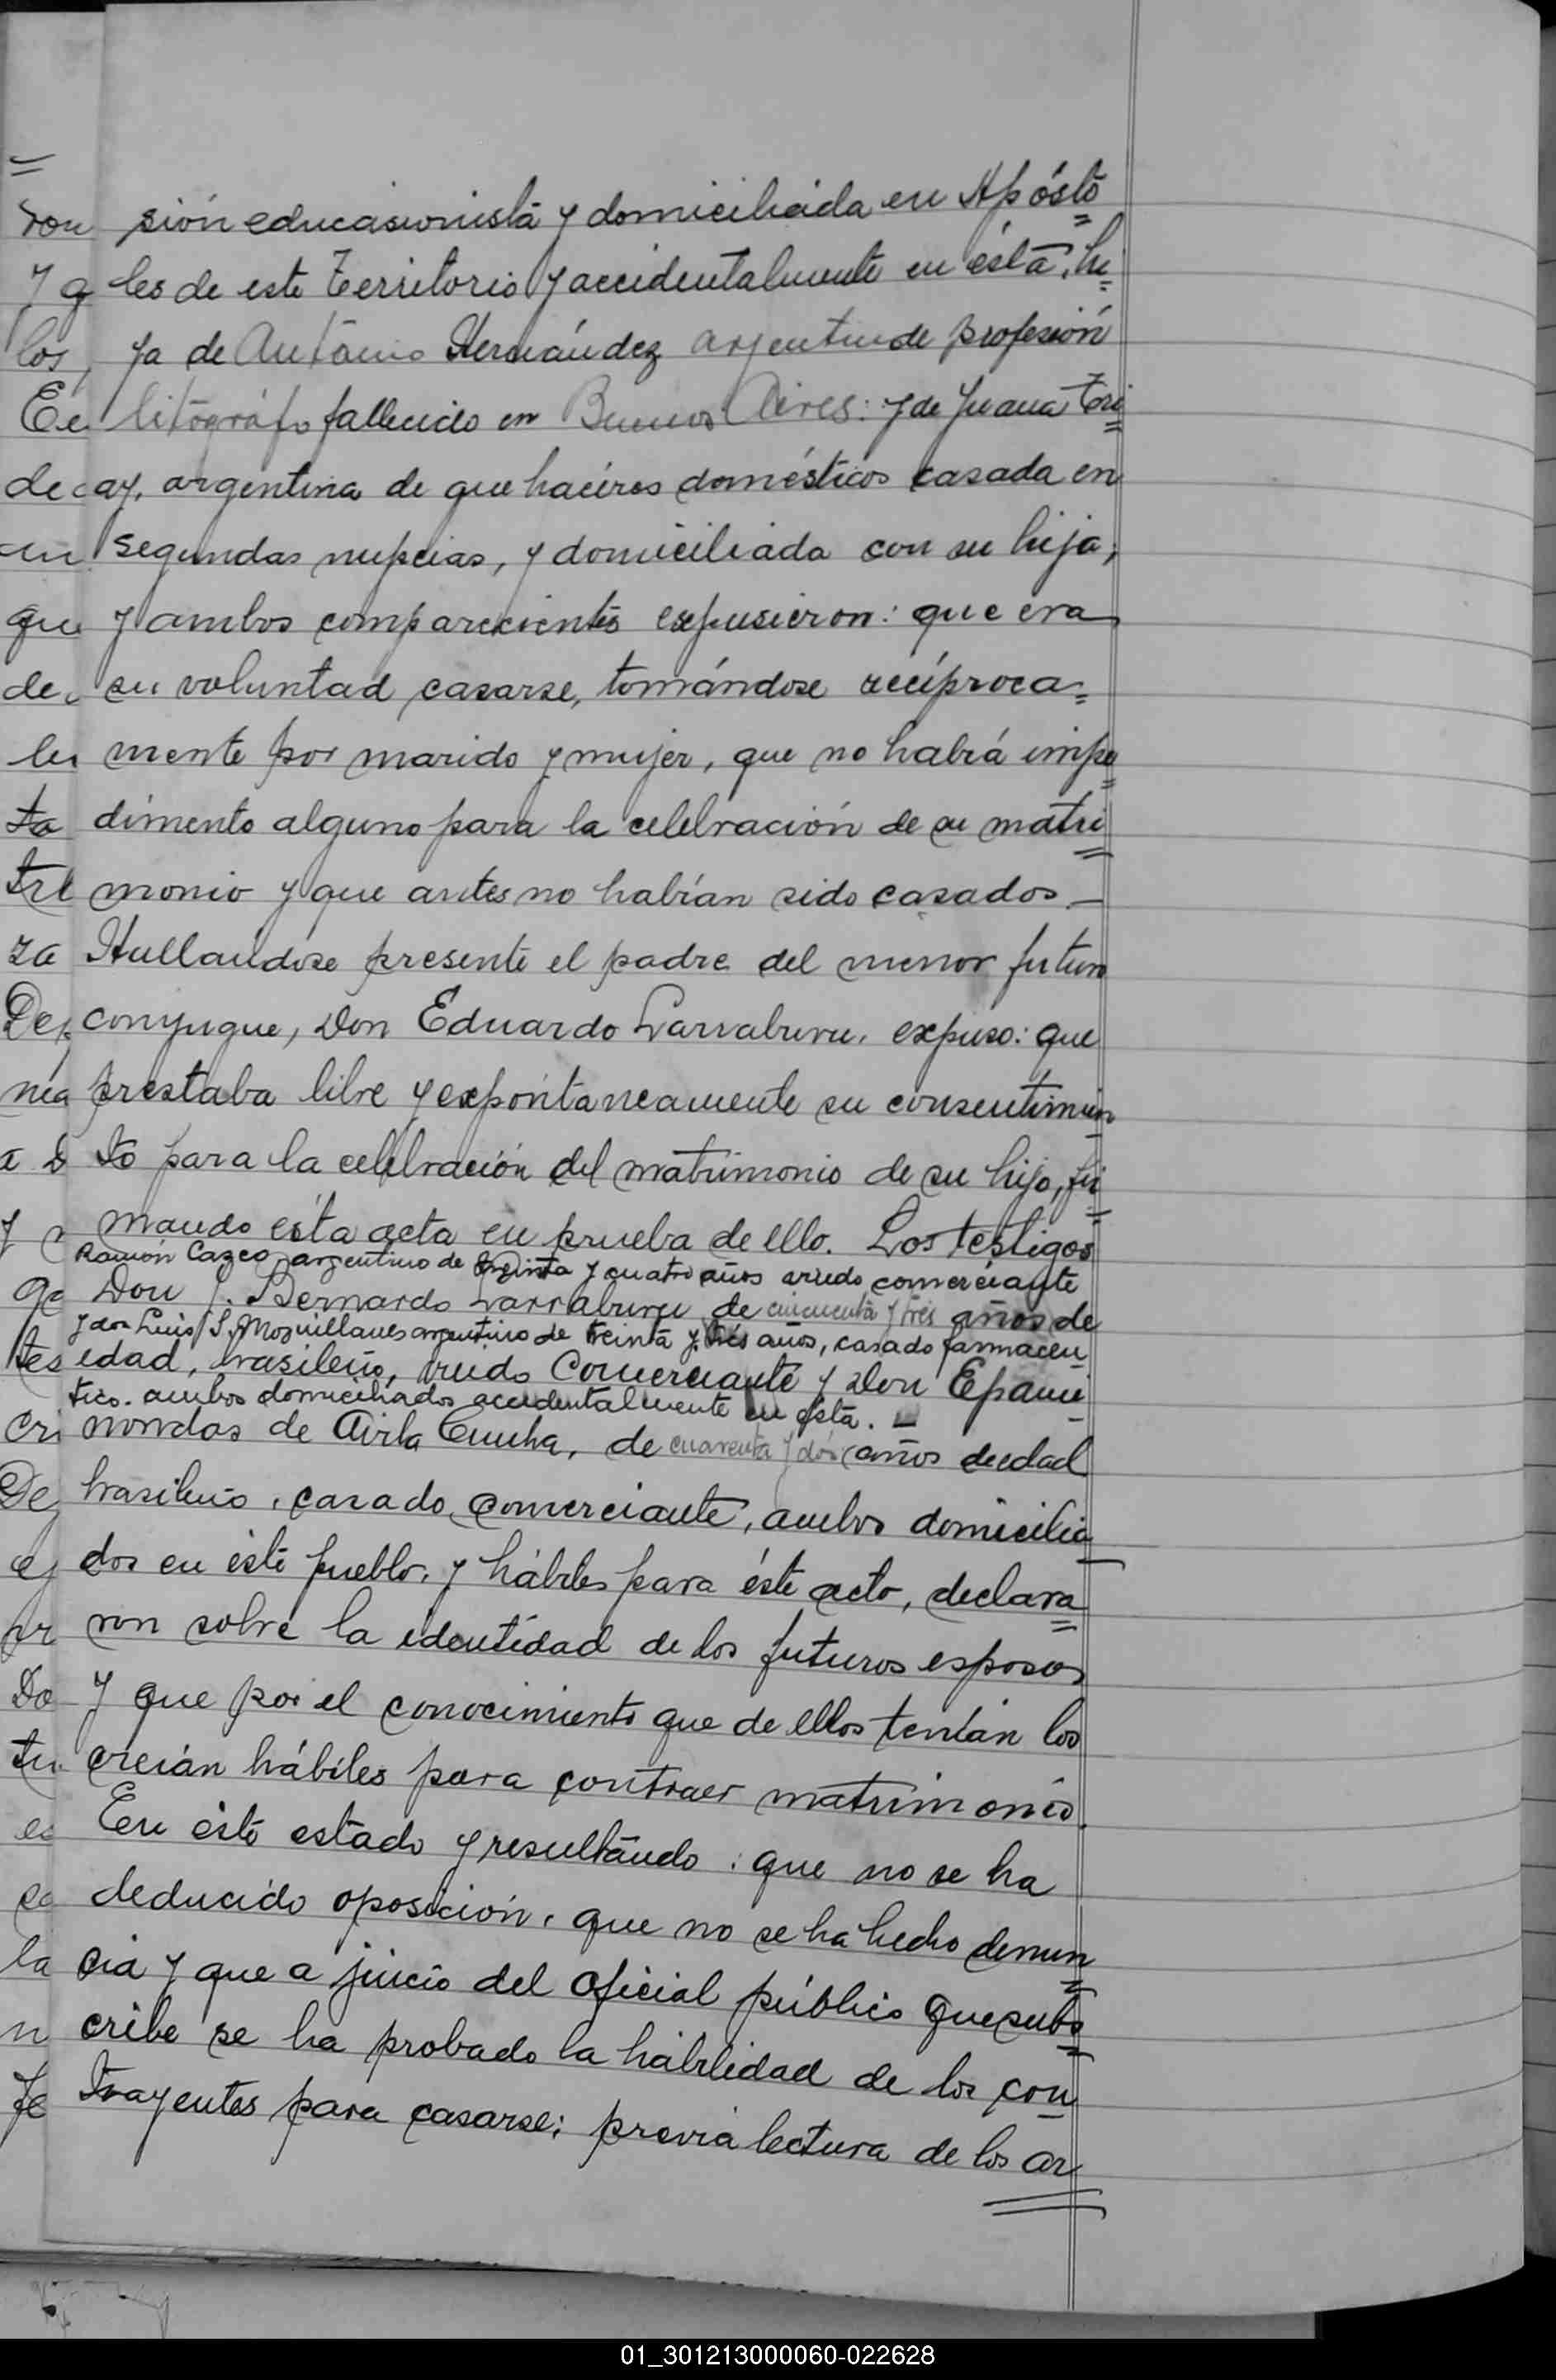 sión educasionista y domiciliada en Apósto=
les de este territorio y accidentalmente en ésta, hi=
ja de Antonio Hernández argentino de profesión
litógráfo fallecido en Buenos Aires: y de Juana
ay, argentina de que haceres domésticos casada en
segundas nupcias, y domiciliada con su hija;
y ambos comparecientes expusieron: que era
su voluntad casarse, tomándose recíproca=
mente por marido y mujer, que no habrá impe=
dimento alguno para la celebración de su matri=
monio y que antes no habían sido casados.—
Hallandose presente el padre del menor futuro
conyugue, Don Eduardo Larraburu, expuso: que
prestaba libre y expontaneamente su consentimien
to para la celebración del matrimonio de su hijo, fir=
mando ésta acta en prueba de ello. Los testigos
Ramón Cazco argentino de treinta y cuatro años viudo comerciante
Don J. Bernardo Larraburu de cincuenta y tres años de
y don Luis S. argentino de treinta y tres años, casado farmaceu
edad, brasileño, viudo Comerciante y Don Epami
tico. ambos domiciliados accidentalmente en ésta. —
nondas de Avila Cunha, de cuarenta y dos años de edad
brasileño, casado, comerciante, ambos domicilia
dos en éste pueblo, y hábiles para éste acto, declara=
ron sobre la identidad de los futuros esposos
y que por el conocimiento que de ellos tenían los
creián hábiles para contraer matrimonio.
En éste estado y resultando: que no se ha
deducido oposición, que no se ha hecho denun=
cia y que a juicio del oficial público que subs=
cribe se ha probado la habilidad de los con
trayentes para casarse; previa lectura de los ar=
01_301213000060-022628